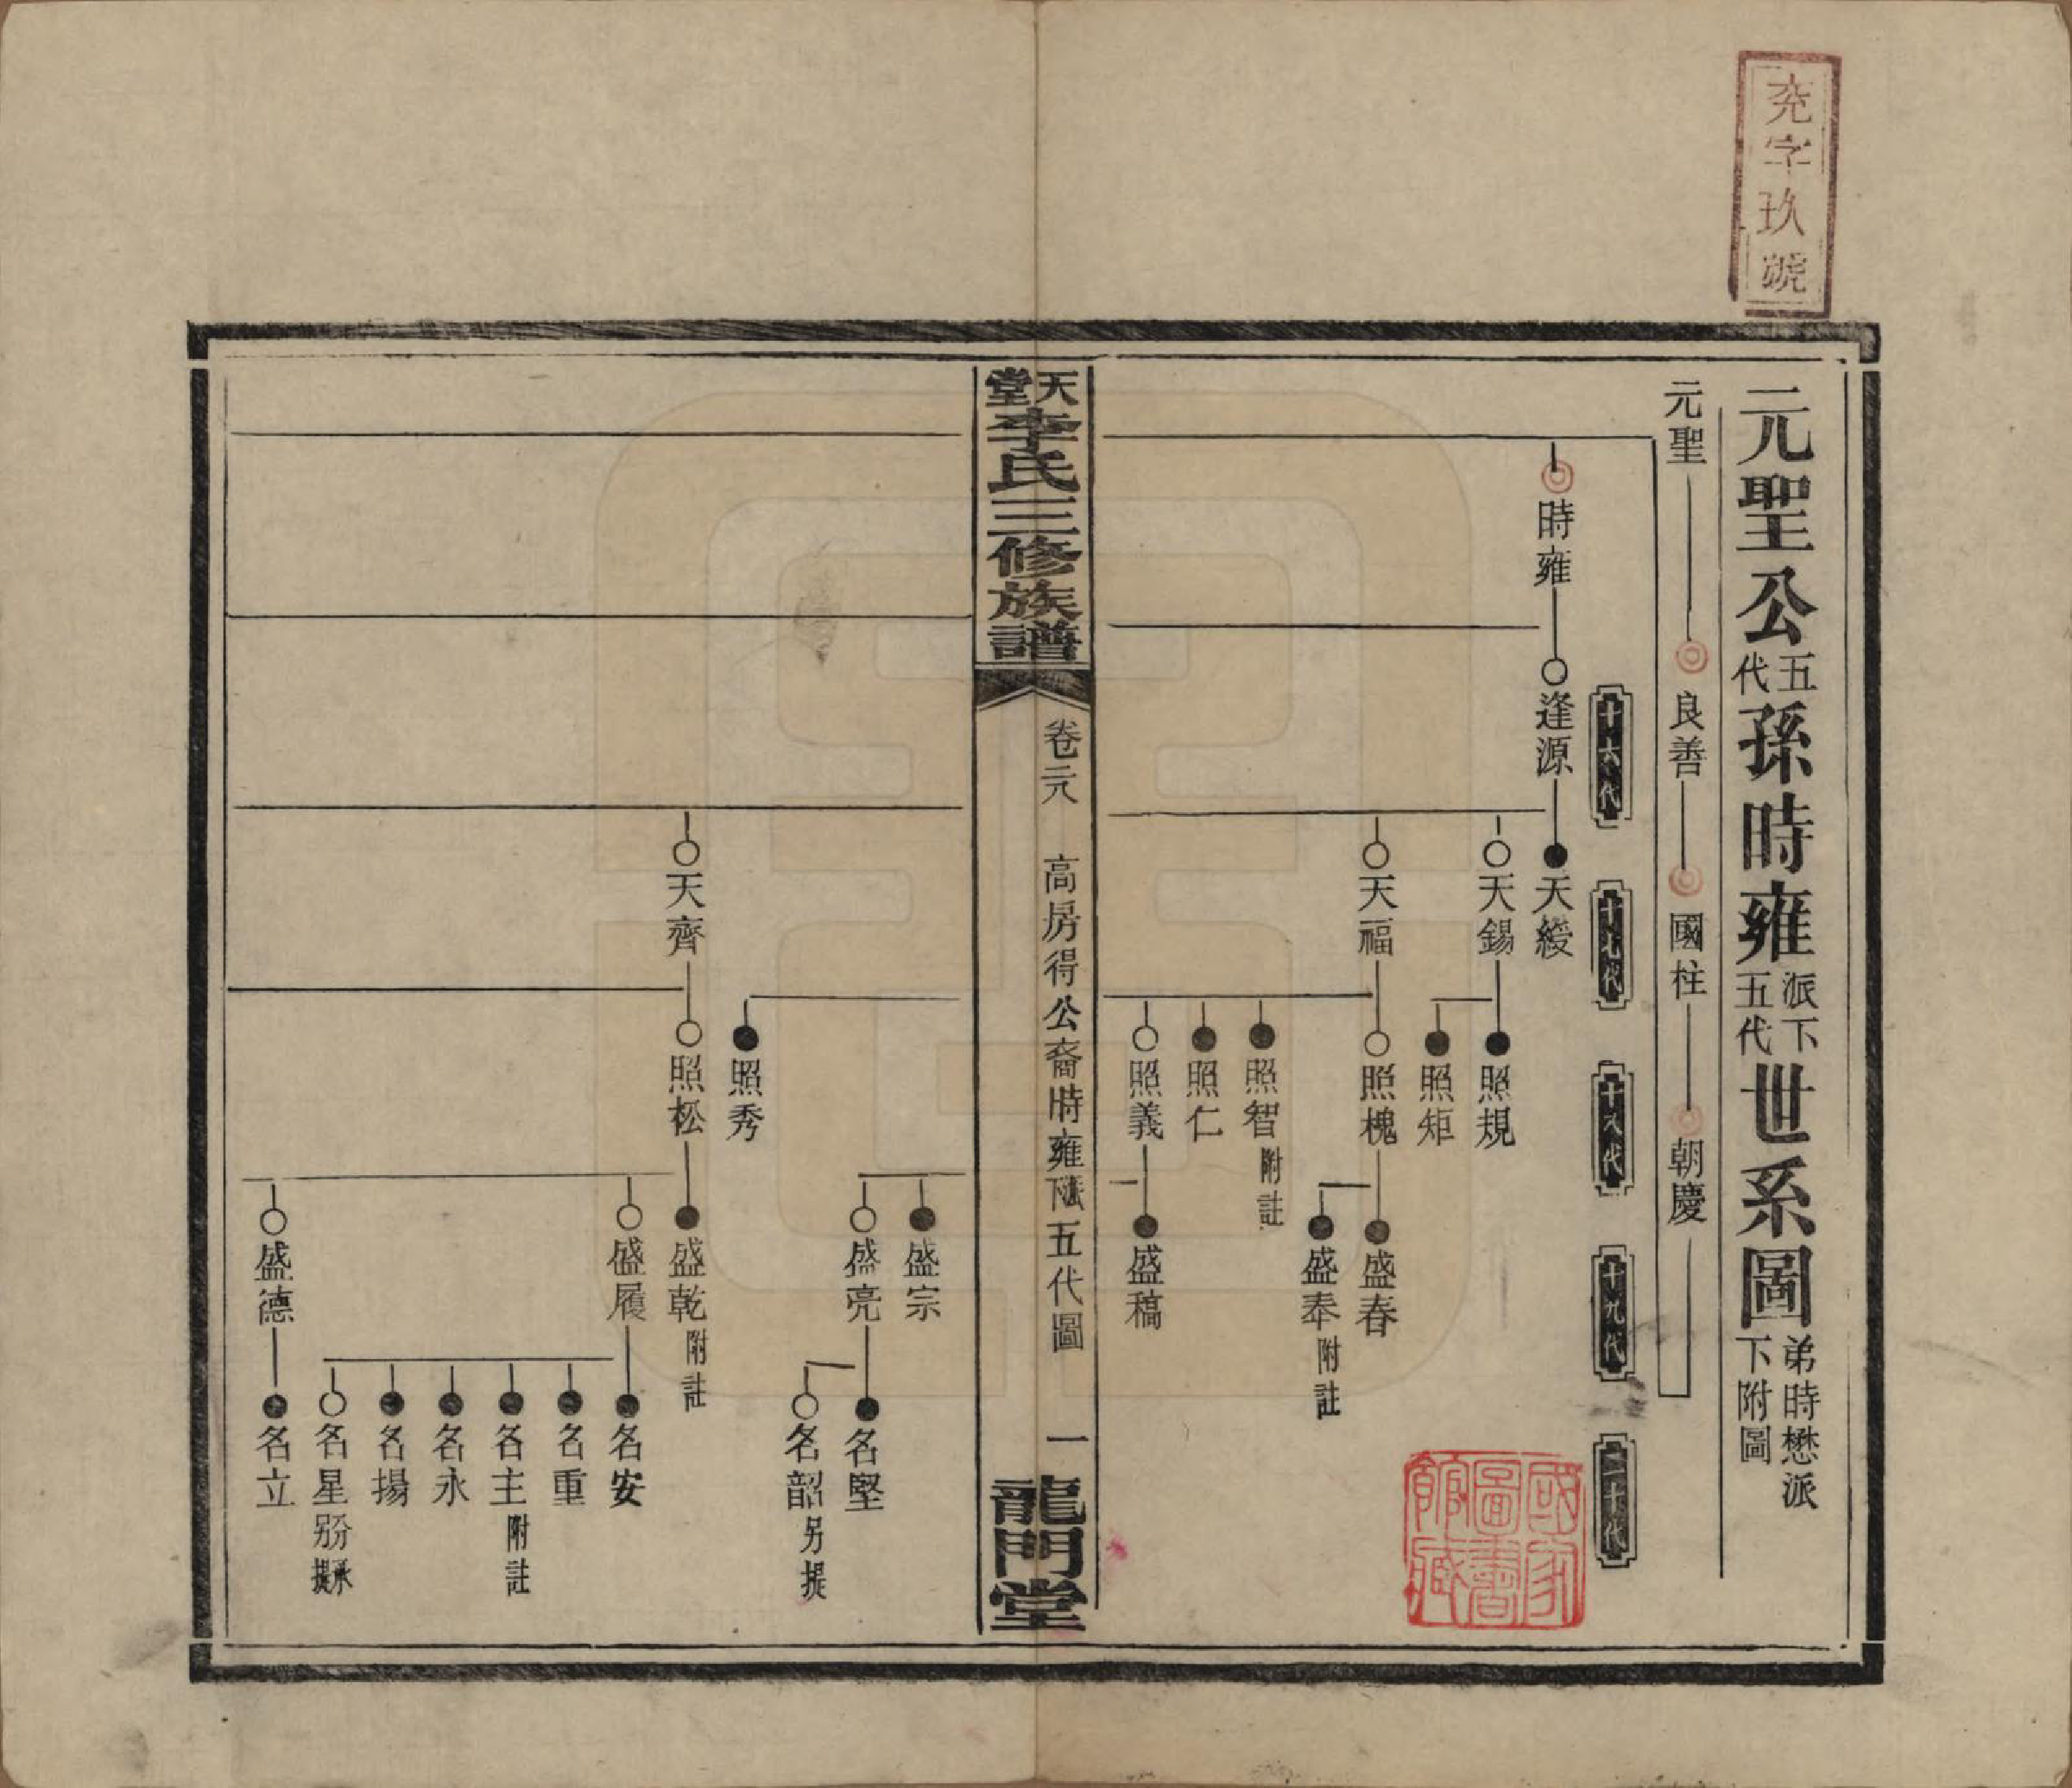 充字玖號
元聖公五代孫時雍派下五代世系圖弟時懋派下附圖
元聖 良善 國柱 朝慶
十六代 十七代 十八代 十九代 二十代
時雍 逢源 天綬
天錫 照規
照矩
天福 照槐 盛春
盛奉 附註
照智 附註
照仁
照義 盛稿
天堂李氏三修族譜
卷元 高房得公裔時雍派下五代圖 一
龍門堂
盛宗
盛亮 名堅
名韶 另提
照秀
天齊 照松 盛乾 附註
盛履 名安
名重
名主 附註
名永
名揚
名星
盛德 名立
國家圖書館藏